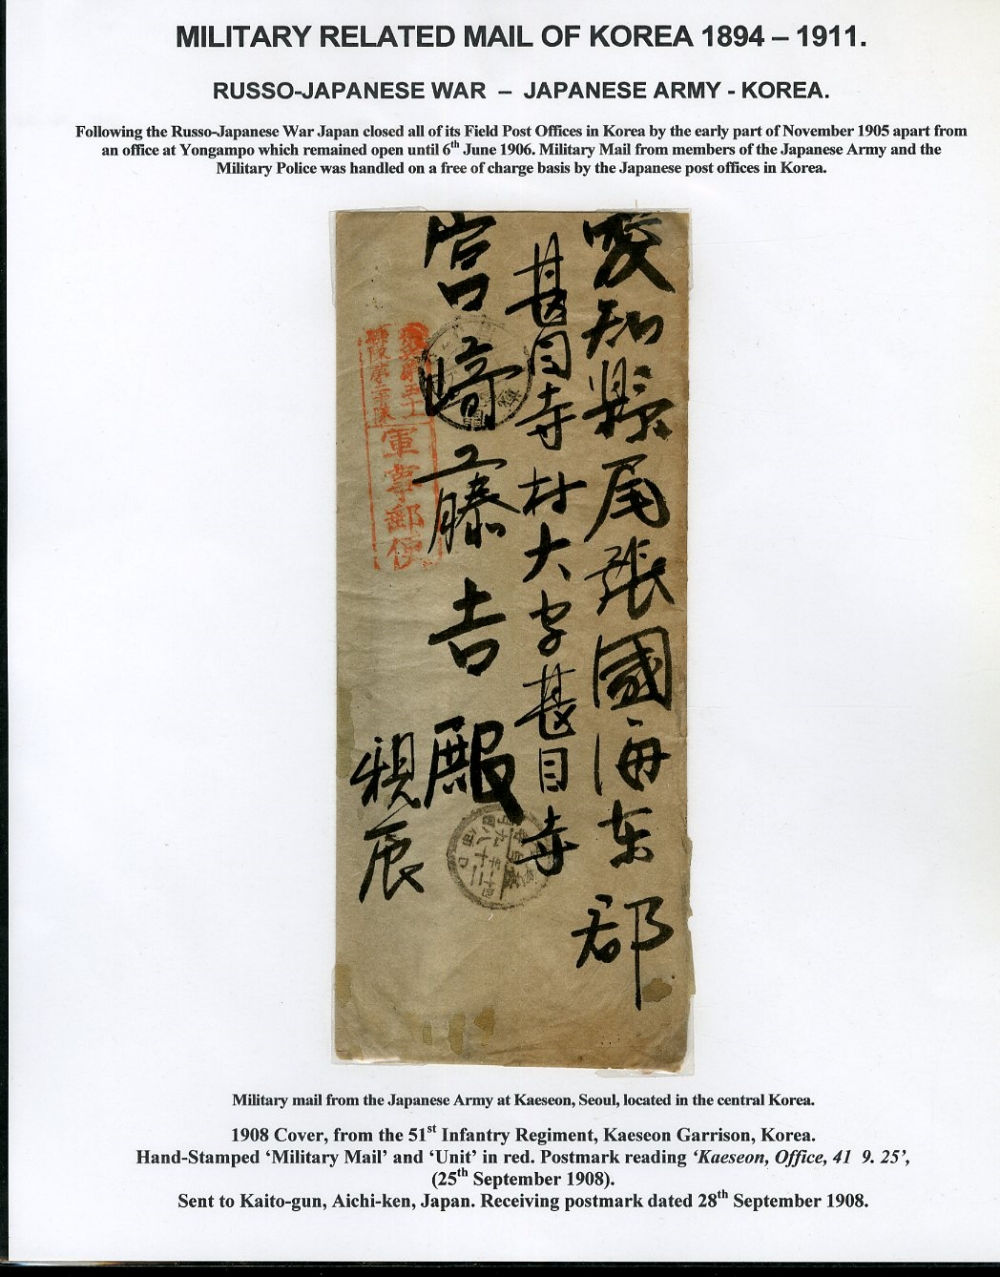 MILITARY RELATED MAIL OF KOREA 1894 – 1911.
RUSSO-JAPANESE WAR – JAPANESE ARMY - KOREA.
Following the Russo-Japanese War Japan closed all of its Field Post Offices in Korea by the early part of November 1905 apart from
an office at Yongampo which remained open until 6th June 1906. Military Mail from members of the Japanese Army and the
Military Police was handled on a free of charge basis by the Japanese post offices in Korea.
愛知縣尾張國海东郡
甚目寺村大字甚目寺
宮崎藤吉殿
親展
軍事郵便
Military mail from the Japanese Army at Kaeseon, Seoul, located in the central Korea.
1908 Cover, from the 51st Infantry Regiment, Kaeseon Garrison, Korea.
Hand-Stamped ‘Military Mail’ and ‘Unit’ in red. Postmark reading ‘Kaeseon, Office, 41 9. 25’,
(25th September 1908).
Sent to Kaito-gun, Aichi-ken, Japan. Receiving postmark dated 28th September 1908.